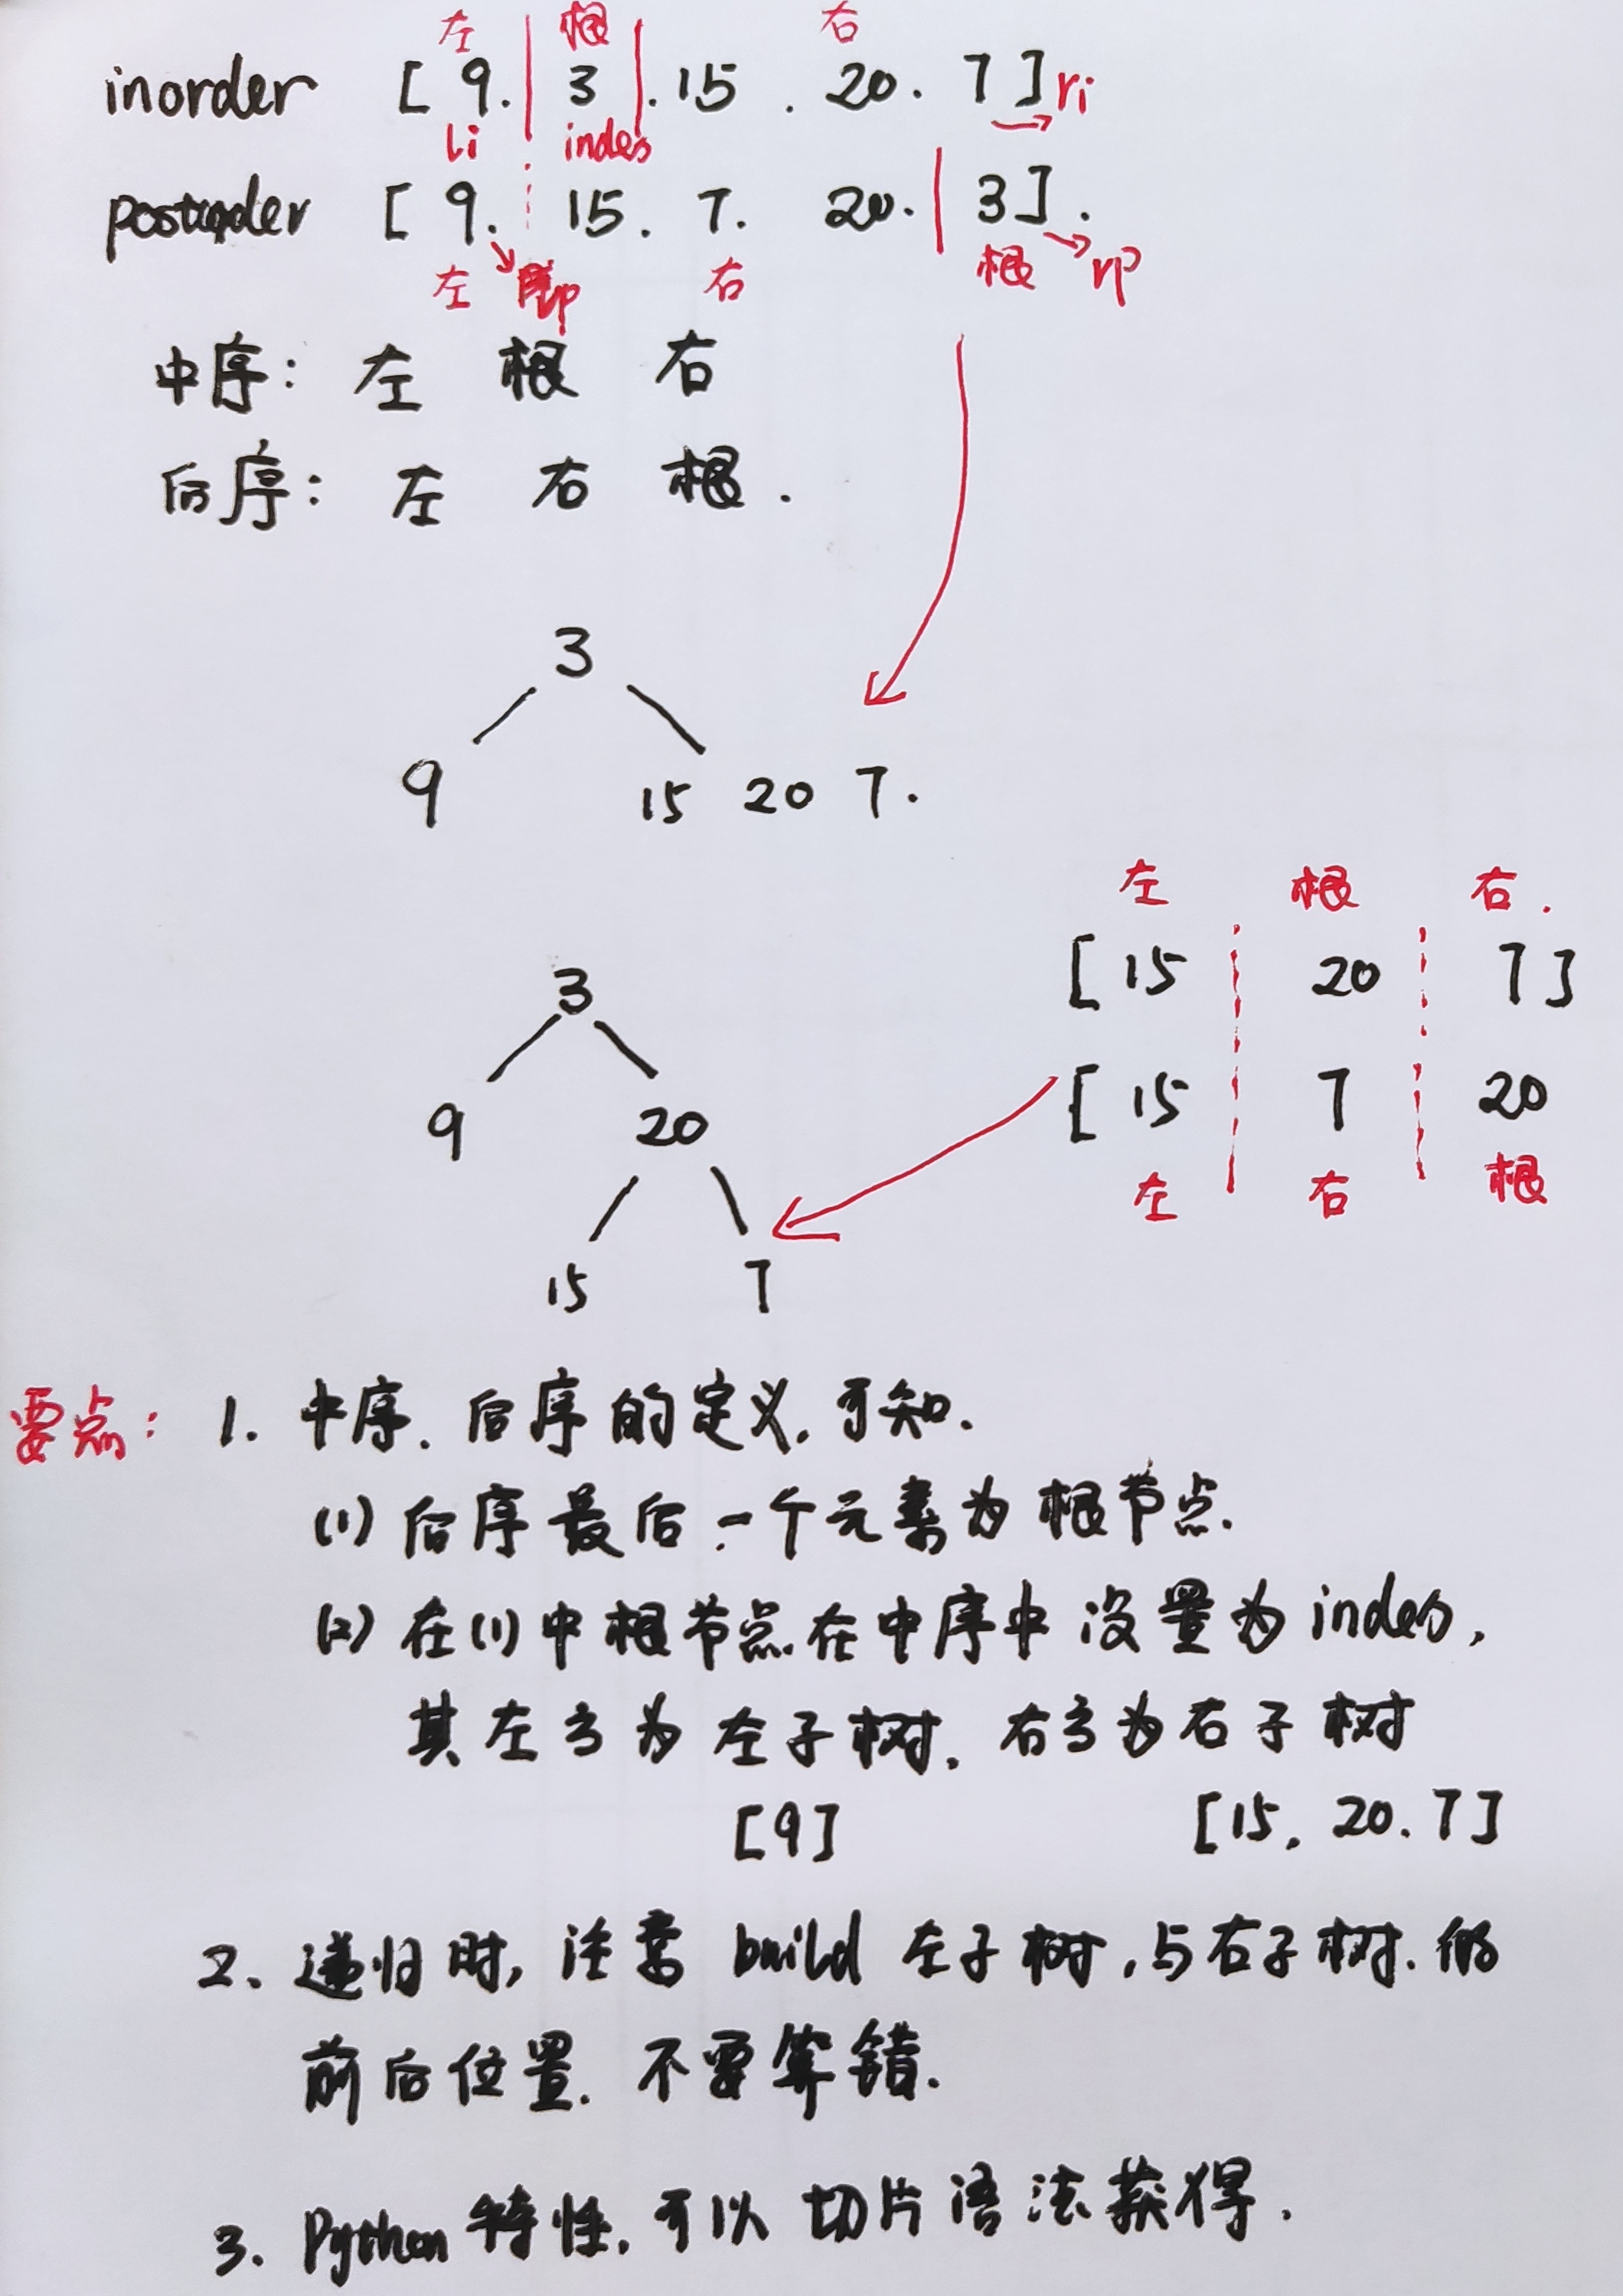 左 根 右
inorder [ 9. 3 . 15 . 20 . 7 ] ri
li index
postorder [ 9. 15. 7. 20. 3 ] .
左 右 根 rp
中序: 左 根 右
后序: 左 右 根 .
3
9 15 20 7 .
左 根 右 .
[ 15 20 7 ]
3
[ 15 7 20
9 20
左 右 根
15 7
要点: 1. 中序. 后序的定义. 可知.
(1) 后序最后一个元素为根节点.
(2) 在(1)中根节点在中序中设置为index,
其左方为左子树. 右方为右子树
[9] [15, 20. 7]
2. 递归时, 注意 build 左子树, 与右子树. 的
前后位置. 不要算错.
3. Python 特性, 可以切片语法获得.